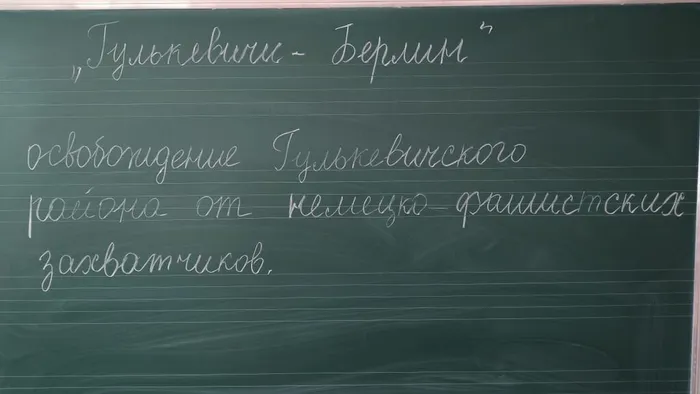 „Гулькевичи - Берлин"
освобождение Гулькевичского
района от немецко-фашистских
захватчиков.